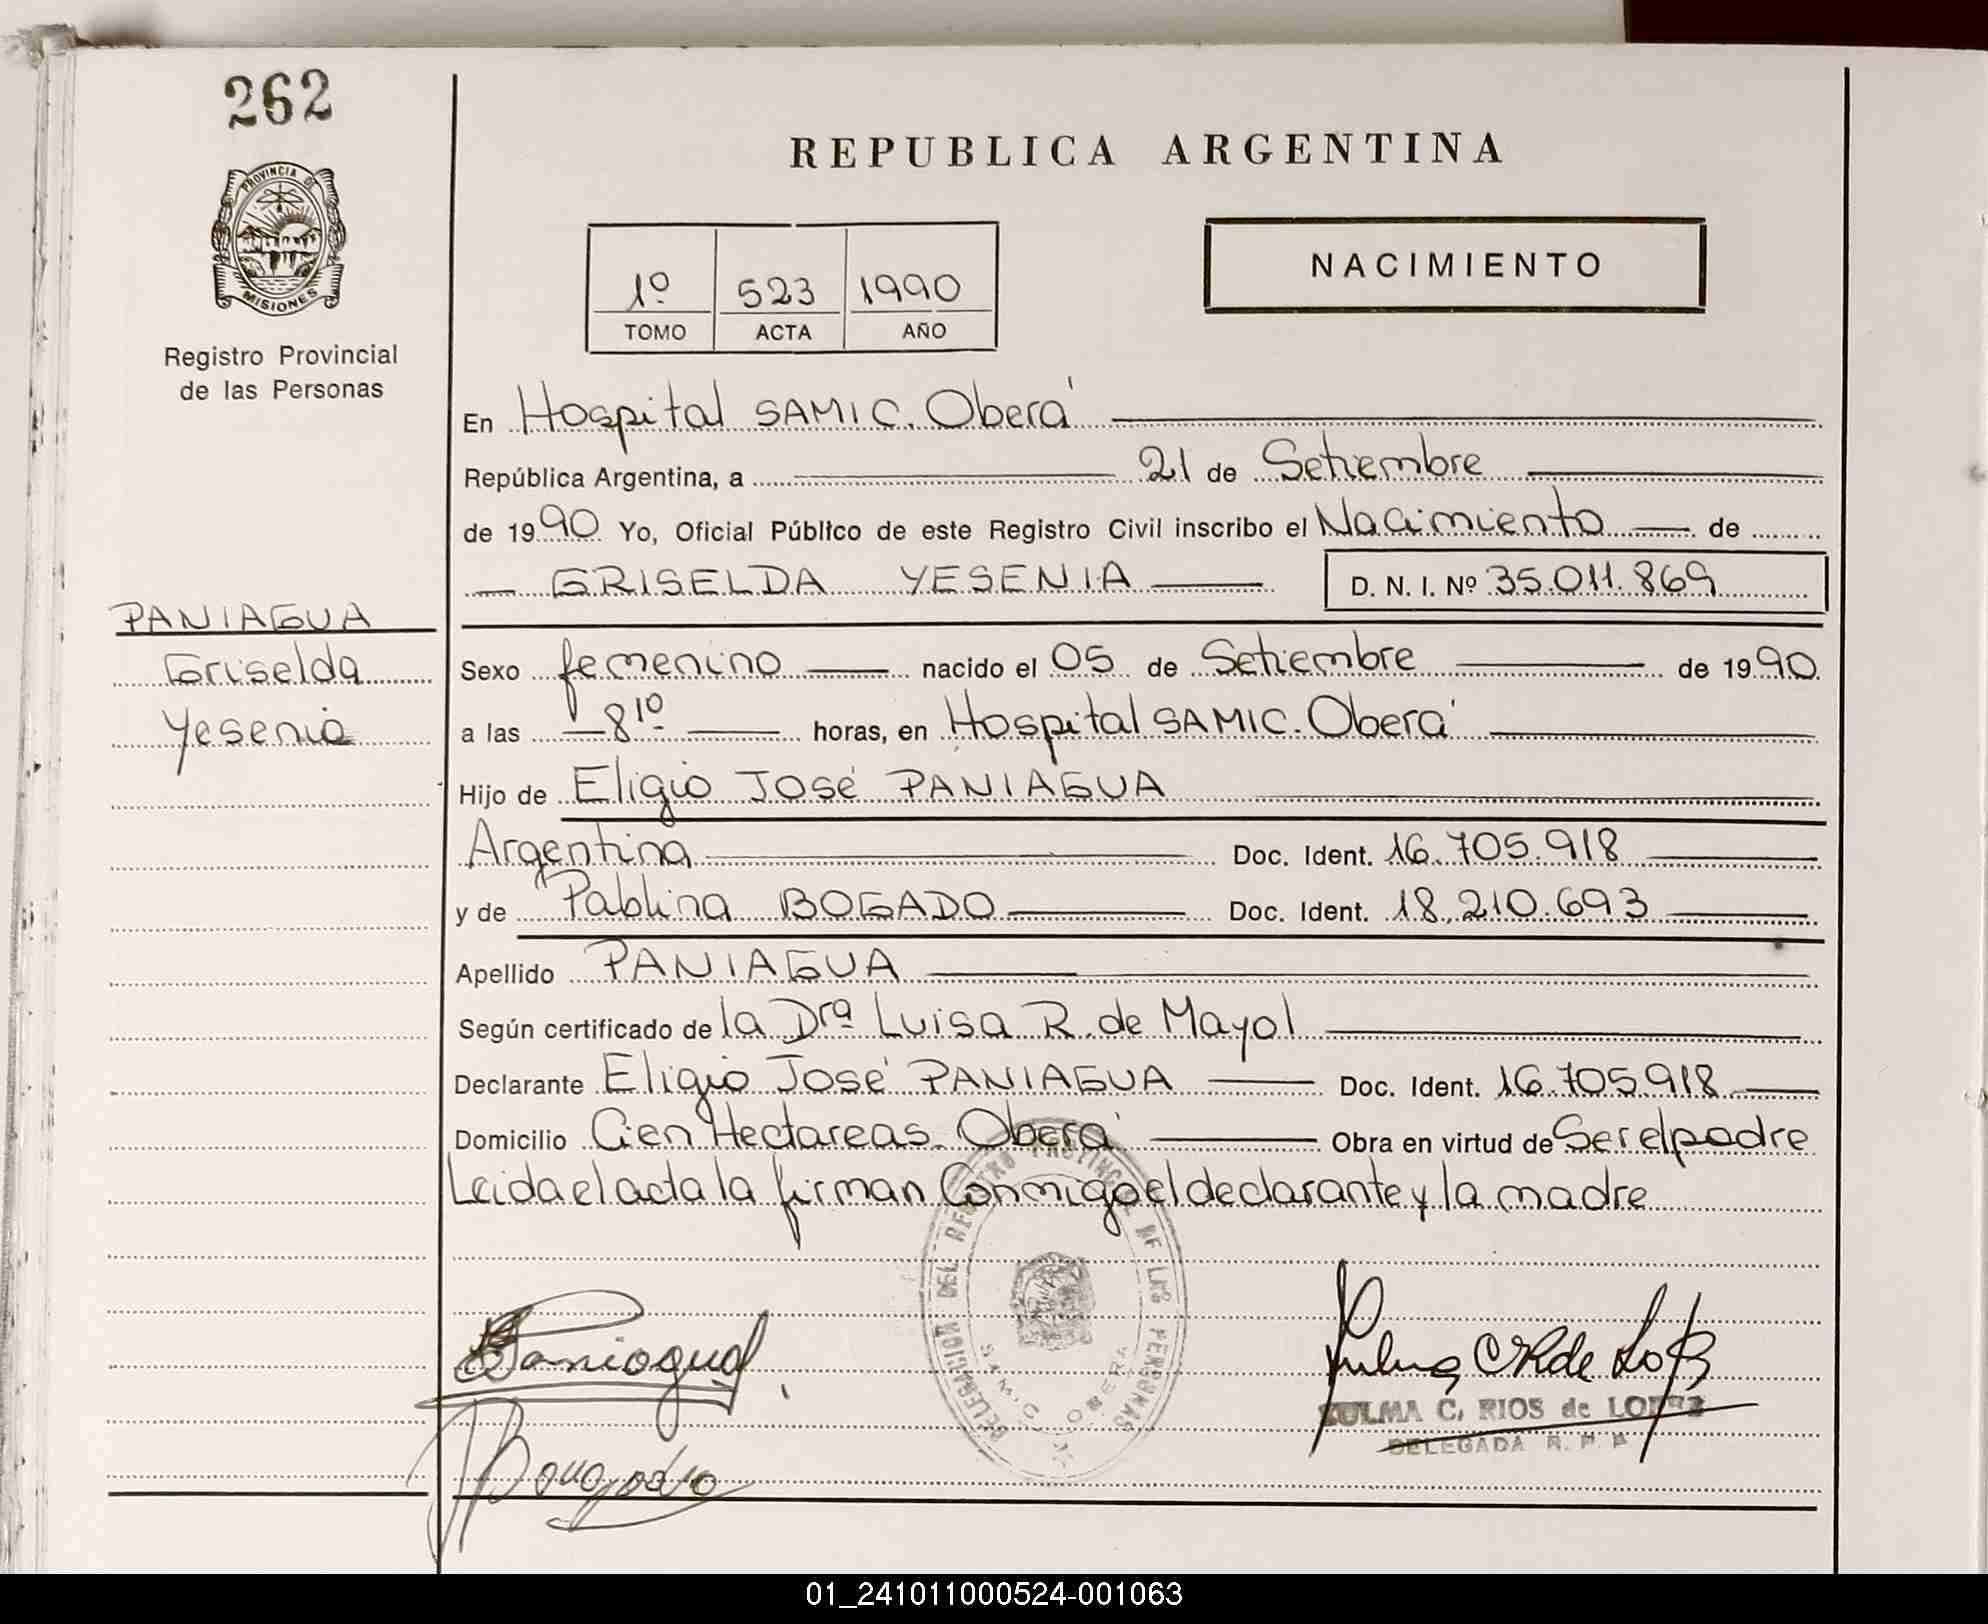 262
REPUBLICA ARGENTINA
PROVINCIA DE
MISIONES
Registro Provincial
de las Personas
1º 523 1990
TOMO ACTA AÑO
NACIMIENTO
En Hospital SAMIC. Oberá
República Argentina, a 21 de Setiembre
de 1990 Yo, Oficial Público de este Registro Civil inscribo el Nacimiento de
GRISELDA YESENIA D. N. I. Nº 35.011.869
PANIAGUA
Griselda
Yesenia
Sexo femenino nacido el 05 de Setiembre de 1990
a las 8 10 horas, en Hospital SAMIC. Oberá
Hijo de Eligio José PANIAGUA
Argentina Doc. Ident. 16.705.918
y de Pablina BOGADO Doc. Ident. 18.210.693
Apellido PANIAGUA
Según certificado de la Drª Luisa R. de Mayol
Declarante Eligio José PANIAGUA Doc. Ident. 16.705.918
Domicilio Cien Hectareas. Oberá Obra en virtud de Ser el padre
Leida el acta la firman Conmigo el declarante y la madre
DELEGACION DEL REGISTRO PROVINCIAL DE LAS PERSONAS
SAMIC OBERA
Paniagua
ZULMA C. RIOS de LOPEZ
DELEGADA R. P. P.
01_241011000524-001063